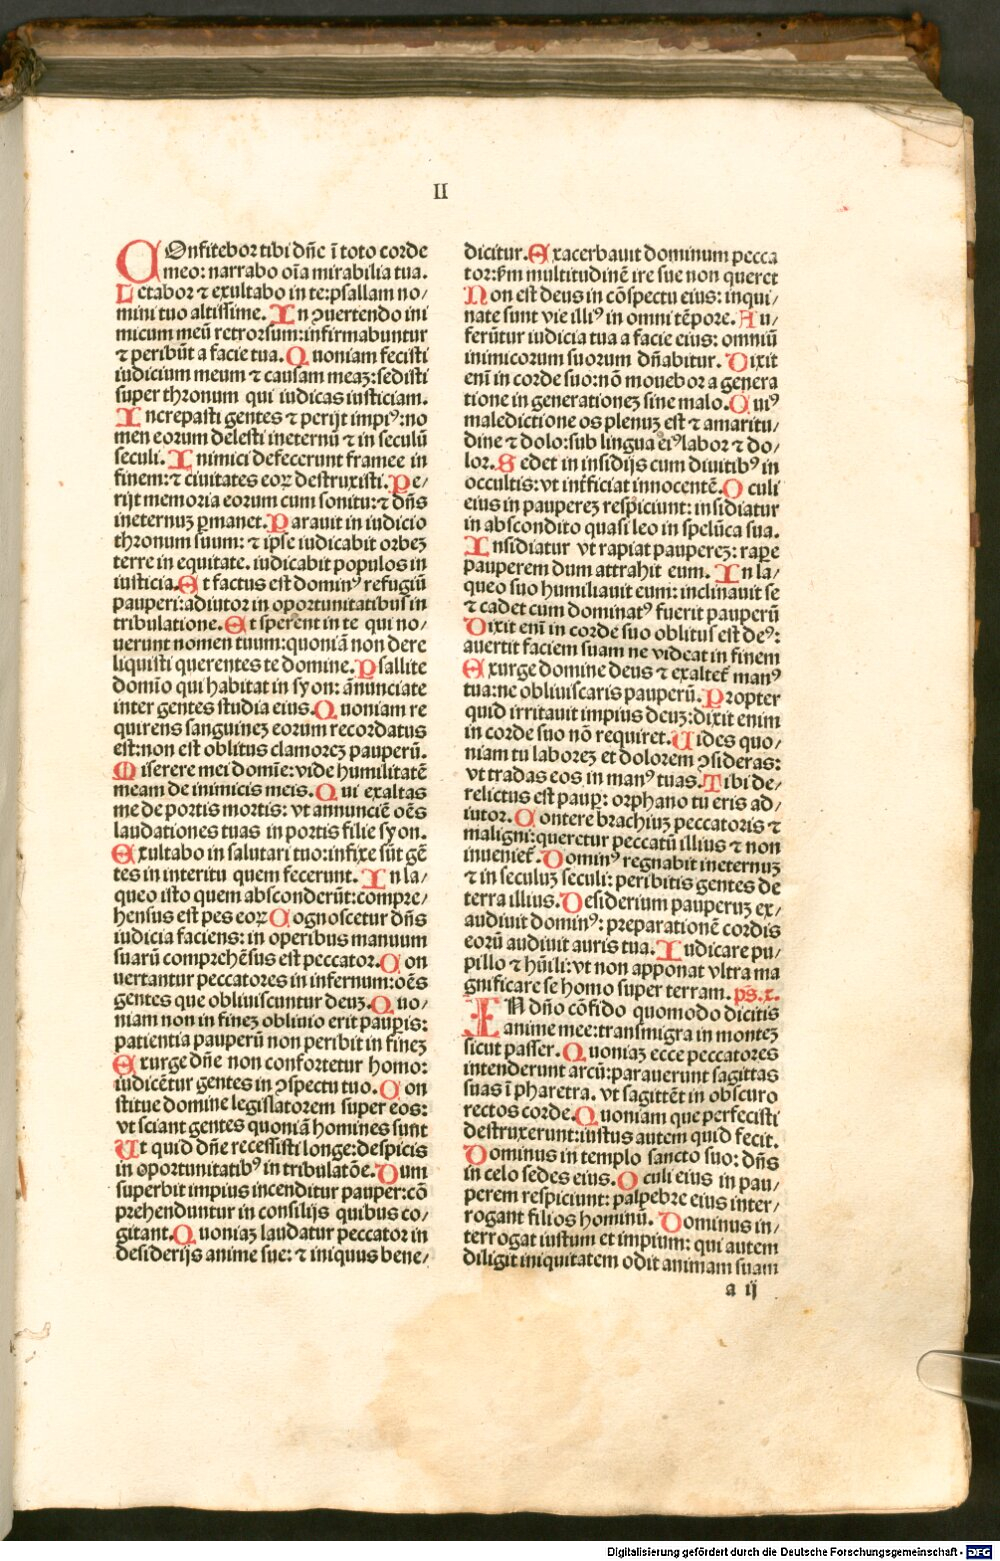 II
COnfitebor tibi dñe ī toto corde
meo: narrabo oīa mirabilia tua.
Letabor ⁊ exultabo in te:psallam no/
mini tuo altissime. In ꝯuertendo ini
micum meū retrorsum:infirmabuntur
⁊ peribūt a facie tua. Quoniam fecisti
iudicium meum ⁊ causam meaꝫ:sedisti
super thronum qui iudicas iusticiam.
Increpasti gentes ⁊ perijt impiꝰ:no
men eorum delesti ineternū ⁊ in seculū
seculi. Inimici defecerunt framee in
finem:⁊ ciuitates eoꝝ destruxisti. Pe/
rijt memoria eorum cum sonitu:⁊ dñs
ineternuꝫ ꝑmanet. Parauit in iudicio
thronum suum: ⁊ ipse iudicabit orbeꝫ
terre in equitate. iudicabit populos in
iusticia. Et factus est dominꝰ refugiū
pauperi:adiutor in oportunitatibus in
tribulatione. Et sperent in te qui no/
uerunt nomen tuum:quoniā non dere
liquisti querentes te domine. Psallite
domīo qui habitat in syon: ānunciate
inter gentes studia eius. Quoniam re
quirens sanguineꝫ eorum recordatus
est:non est oblitus clamoreꝫ pauperū.
Miserere mei domīe:vide humilitatē
meam de inimicis meis. Qui exaltas
me de portis mortis: vt annunciē oēs
laudationes tuas in portis filie syon.
Exultabo in salutari tuo:infixe sūt gē
tes in interitu quem fecerunt. In la/
queo isto quem absconderūt:compre/
hensus est pes eoꝝ Cognoscetur dñs
iudicia faciens: in operibus manuum
suarū comprehēsus est peccator. Con
uertantur peccatores in infernum:oēs
gentes que obliuiscuntur deuꝫ. Quo/
niam non in fineꝫ obliuio erit pauꝑis:
patientia pauperū non peribit in fineꝫ
Exurge dñe non confortetur homo:
iudicētur gentes in ꝯspectu tuo. Con
stitue domine legislatorem super eos:
vt sciant gentes quoniā homines sunt
Ut quid dñe recessisti longe:despicis
in oportunitatibꝰ in tribulatōe. Dum
superbit impius incenditur pauper:cō
prehenduntur in consilijs quibus co/
gitant. Quoniaꝫ laudatur peccator in
desiderijs anime sue: ⁊ iniquus bene/
dicitur. Exacerbauit dominum pecca
tor:ẜm multitudinē ire sue non queret
Non est deus in cōspectu eius: inqui/
nate sunt vie illiꝰ in omni tēpore. Au/
ferūtur iudicia tua a facie eius: omniū
inimicorum suorum dñabitur. Dixit
enī in corde suo:nō mouebor a genera
tione in generationeꝫ sine malo. Quiꝰ
maledictione os plenuꝫ est ⁊ amaritu/
dine ⁊ dolo:sub lingua eiꝰ labor ⁊ do/
lor. Sedet in insidijs cum diuitibꝰ in
occultis: vt int̄ficiat innocentē. Oculi
eius in paupereꝫ respiciunt: insidiatur
in abscondito quasi leo in spelūca sua.
Insidiatur vt rapiat paupereꝫ: raꝑe
pauperem dum attrahit eum. In la/
queo suo humiliauit eum: inclinauit se
⁊ cadet cum dominatꝰ fuerit pauperū
Dixit enī in corde suo oblitus est deꝰ:
auertit faciem suam ne videat in finem
Exurge domine deus ⁊ exaltet̄ manꝰ
tua:ne obliuiscaris pauperū. Propter
quid irritauit impius deuꝫ:dixit enim
in corde suo nō requiret. Uides quo/
niam tu laboreꝫ et dolorem ꝯsideras:
vt tradas eos in manꝰ tuas. Tibi de/
relictus est pauꝑ: orphano tu eris ad/
iutor. Contere brachiuꝫ peccatoris ⁊
maligni:queretur peccatū illius ⁊ non
inueniet̄. Dominꝰ regnabit ineternuꝫ
⁊ in seculuꝫ seculi: peribitis gentes de
terra illius. Desiderium pauperuꝫ ex/
audiuit dominꝰ: preparationē cordis
eorū audiuit auris tua. Iudicare pu/
pillo ⁊ hūili:vt non apponat vltra ma
gnificare se homo super terram. ps̄. x.
IN dño cōfido quomodo dicitis
anime mee:transmigra in monteꝫ
sicut passer. Quoniaꝫ ecce peccatores
intenderunt arcū:parauerunt sagittas
suas ī pharetra. vt sagittēt in obscuro
rectos corde. Quoniam que perfecisti
destruxerunt:iustus autem quid fecit.
Dominus in templo sancto suo: dñs
in celo sedes eius. Oculi eius in pau/
perem respiciunt: palpebre eius inter/
rogant filios hominū. Dominus in/
terrogat iustum et impium: qui autem
diligit iniquitatem odit animam suam
a ij
Digitalisierung gefördert durch die Deutsche Forschungsgemeinschaft - DFG